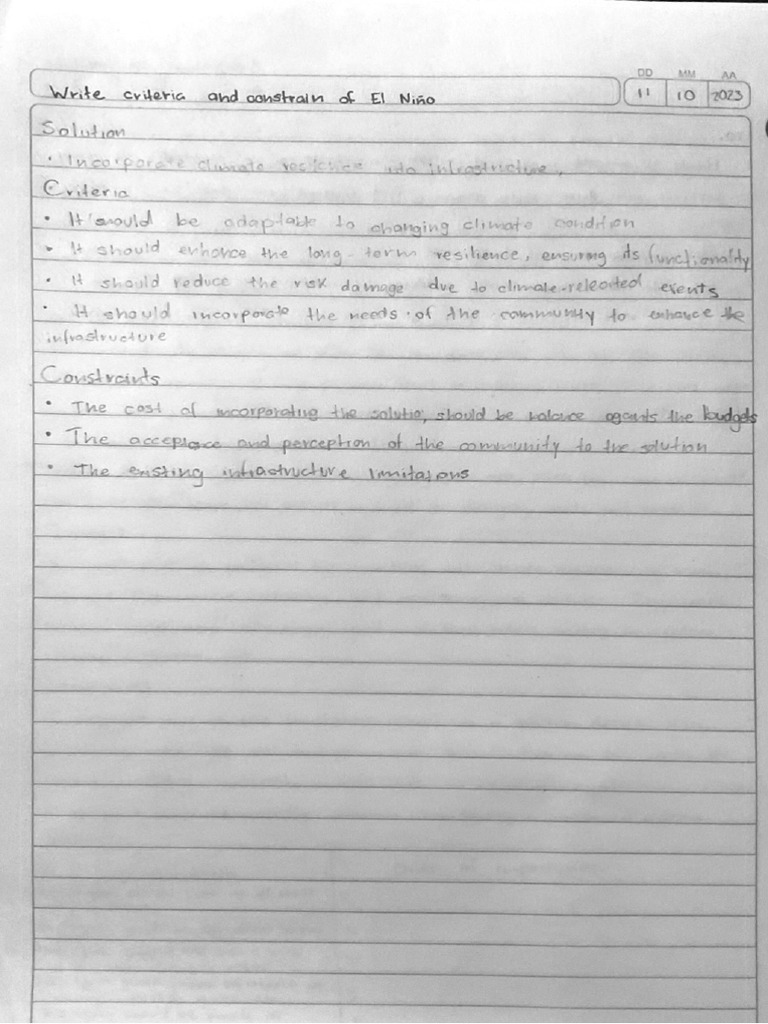 DD MM AA
Write criteria and constrain of El Niño 11 10 2023
Solution
• Incorporate climate resilence into infrastricture.
Criteria
• It should be adaptable to changing climate condition
• It should enhance the long-term resilience, ensuring its functionality
• It should reduce the risk damage due to climate-releated events
• It should incorporate the needs of the community to enhance the
infrastructure
Constraints
• The cost of incorporating the solutio, should be balance agants the budgets
• The acceptance and perception of the community to the solution
• The exsting infrastructure limitations